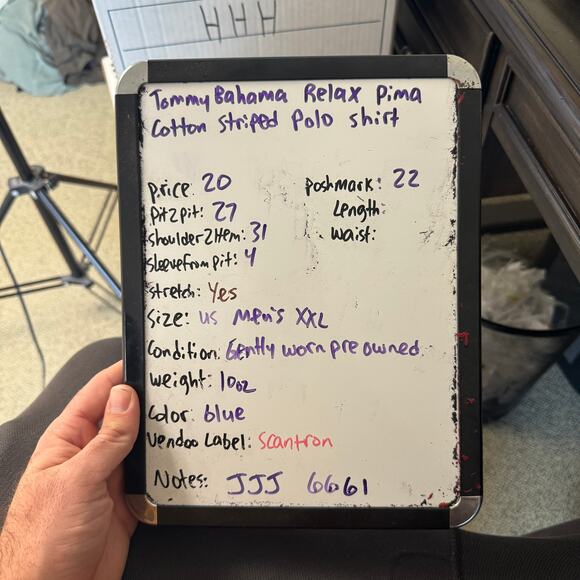 HHH
Tommy Bahama Relax Pima
Cotton Striped Polo shirt
price: 20
Poshmark: 22
Pit2pit: 27
Length:
Shoulder2Hem: 31
Waist:
sleeve from pit: 4
Stretch: Yes
Size: US Men's XXL
Condition: Gently worn pre owned.
Weight: 10oz
Color: blue
Vendoo Label: Scantron
Notes: JJJ 6661